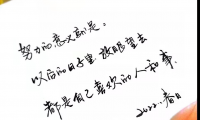 努力的意义就是:
以后的日子里 放眼望去
都是自己喜欢的人和事.
2022.春日